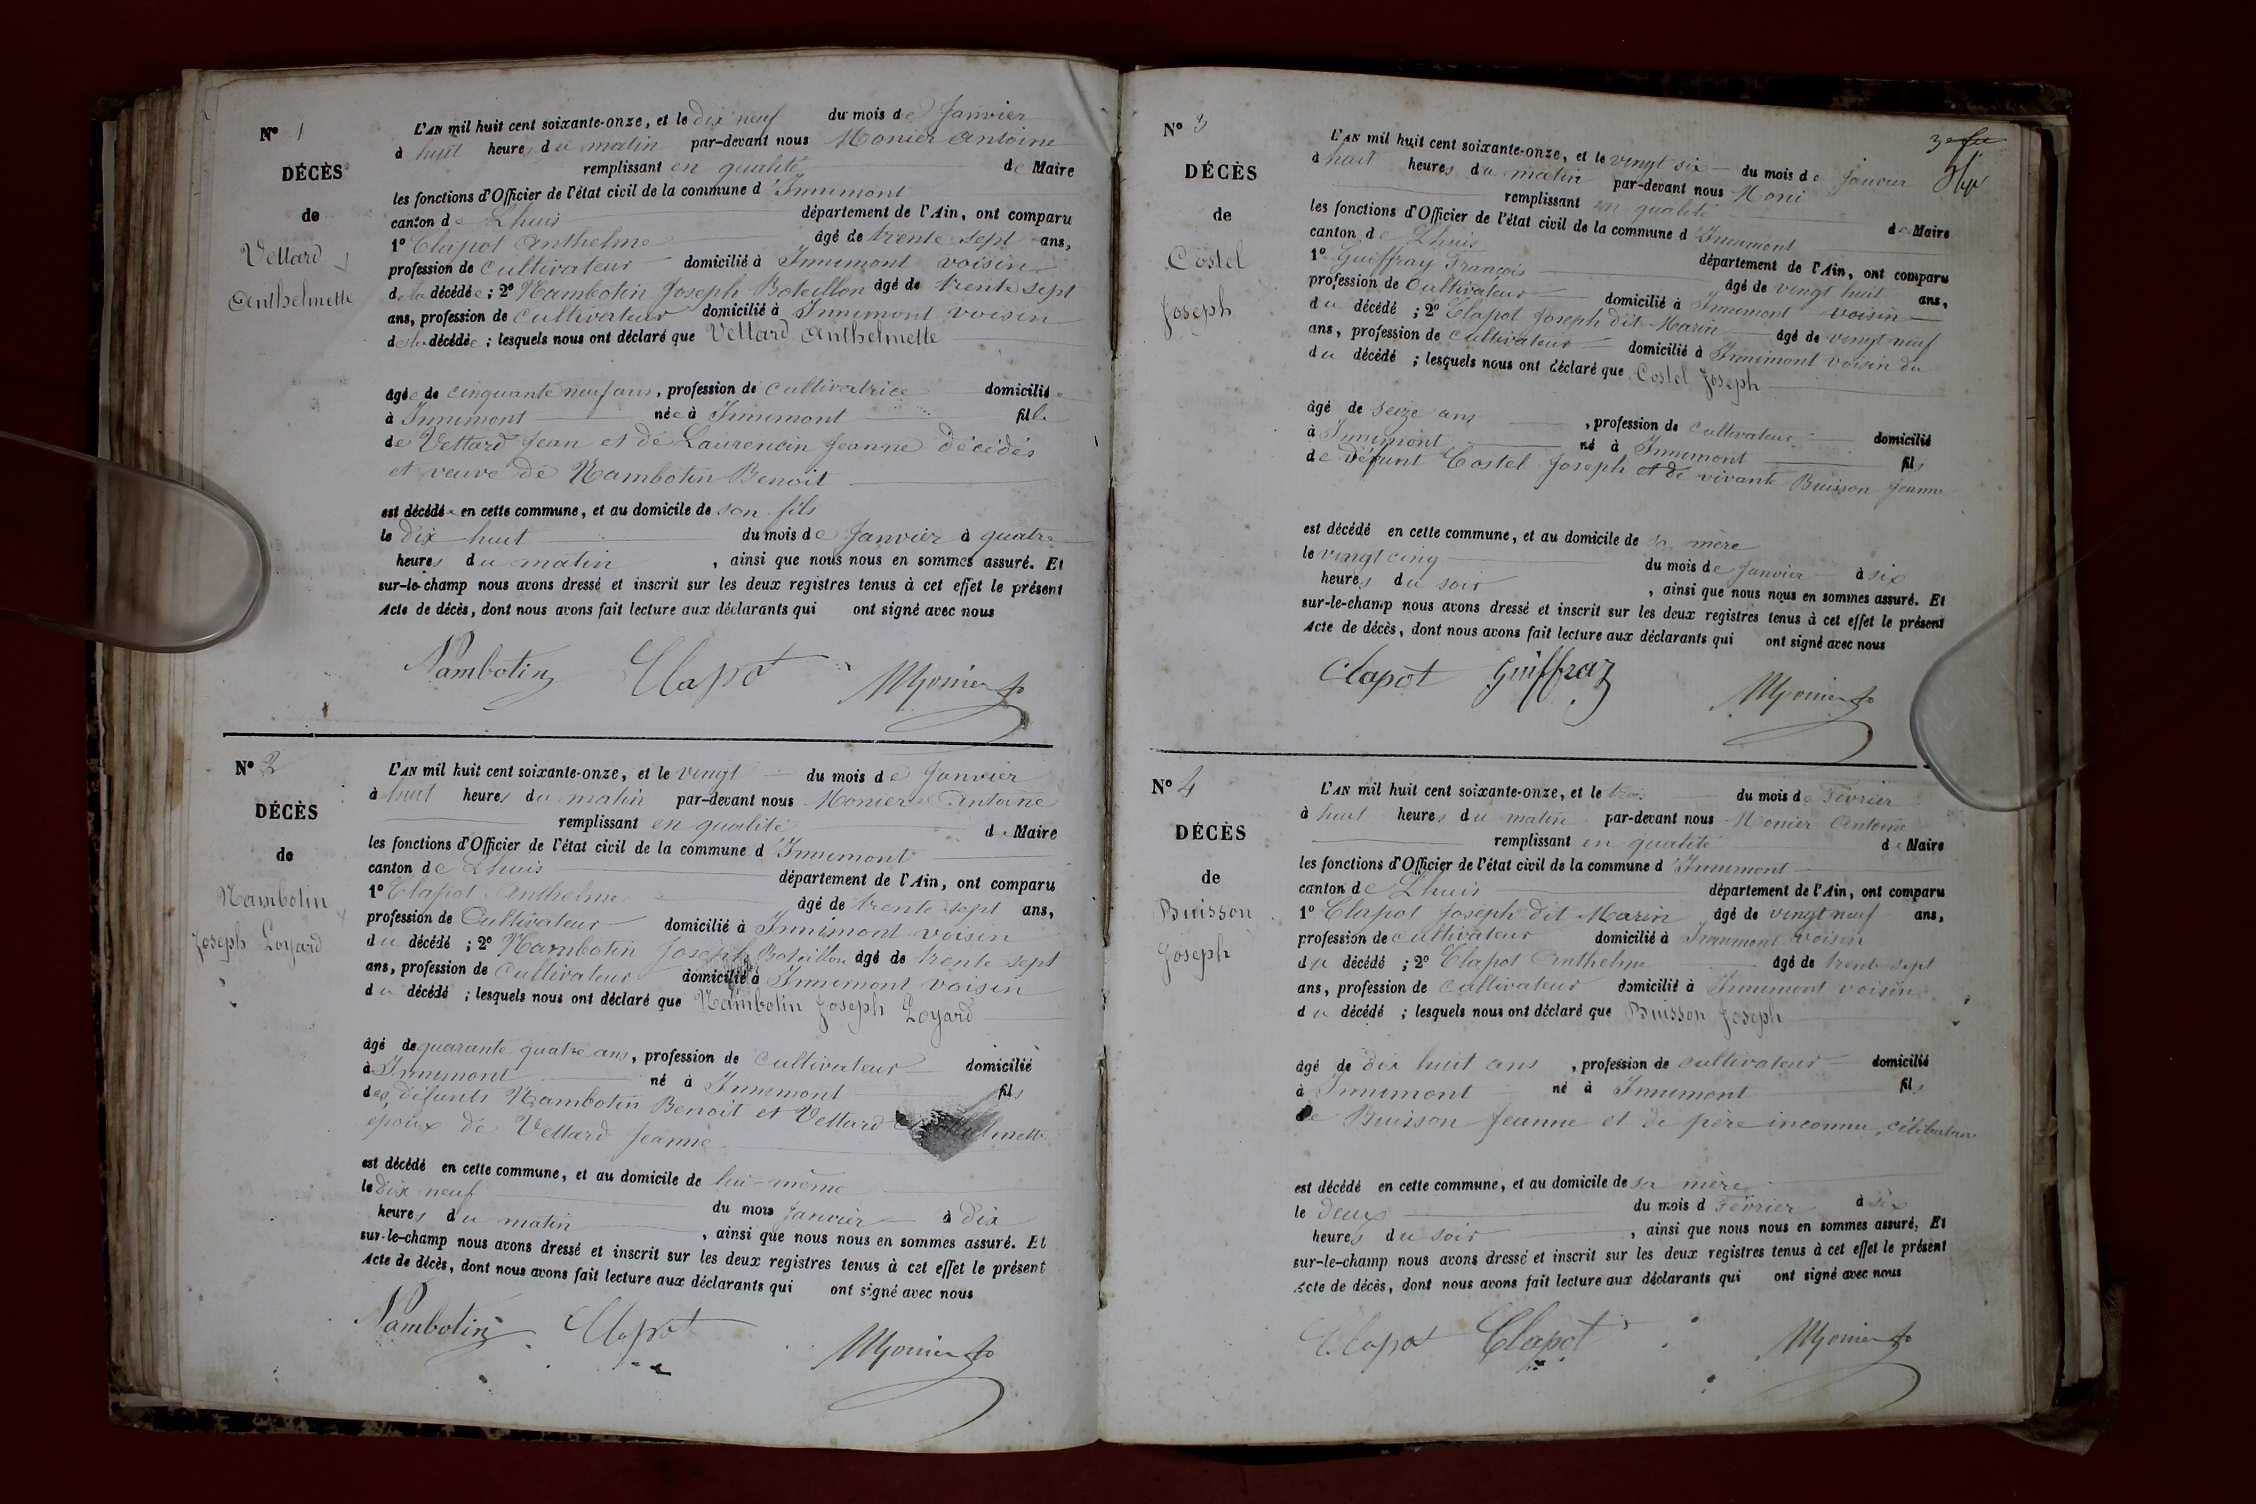 N° 1
DÉCÈS
de
Vettard
Anthelmette
L'AN mil huit cent soixante-onze, et le dix neuf du mois de Janvier
à huit heures du matin par-devant nous Monier Antoine
remplissant en qualité de Maire
les fonctions d'Officier de l'état civil de la commune d'Innimont
canton de Lhuis département de l'Ain, ont comparu
1° Clapot Anthelme âgé de trente sept ans,
profession de Cultivateur domicilié à Innimont voisin
de la décédée ; 2° Nambotin Joseph Boteillon âgé de trente sept
ans, profession de Cultivateur domicilié à Innimont voisin
de la décédée ; lesquels nous ont déclaré que Vettard Anthelmette
âgée de cinquante neuf ans, profession de Cultivatrice domiciliée
à Innimont née à Innimont fille
de Vettard Jean et de Laurencin Jeanne décédés
et veuve de Nambotin Benoit
est décédée en cette commune, et au domicile de son fils
le dix huit du mois de Janvier à quatre
heures du matin , ainsi que nous nous en sommes assuré. Et
sur-le-champ nous avons dressé et inscrit sur les deux registres tenus à cet effet le présent
Acte de décès, dont nous avons fait lecture aux déclarants qui ont signé avec nous
Nambotin Clapot Monier
N° 2
DÉCÈS
de
Nambotin
Joseph Loyard
L'AN mil huit cent soixante-onze, et le vingt du mois de Janvier
à huit heures du matin par-devant nous Monier Antoine
remplissant en qualité de Maire
les fonctions d'Officier de l'état civil de la commune d'Innimont
canton de Lhuis département de l'Ain, ont comparu
1° Clapot Anthelme âgé de trente sept ans,
profession de Cultivateur domicilié à Innimont voisin
du décédé ; 2° Nambotin Joseph Boteillon âgé de trente sept
ans, profession de Cultivateur domicilié à Innimont voisin
du décédé ; lesquels nous ont déclaré que Nambotin Joseph Loyard
âgé de quarante quatre ans, profession de Cultivateur domicilié
à Innimont né à Innimont fils
des défunts Nambotin Benoit et Vettard
époux de Vettard Jeanne
est décédé en cette commune, et au domicile de lui-même
le dix neuf du mois Janvier à dix
heures du matin , ainsi que nous nous en sommes assuré. Et
sur-le-champ nous avons dressé et inscrit sur les deux registres tenus à cet effet le présent
Acte de décès, dont nous avons fait lecture aux déclarants qui ont signé avec nous
Nambotin Clapot Monier
N° 3
DÉCÈS
de
Costel
Joseph
L'AN mil huit cent soixante-onze, et le vingt six du mois de Janvier
à huit heures du matin par-devant nous Moni
remplissant en qualité de Maire
les fonctions d'Officier de l'état civil de la commune d'Innimont
canton de Lhuis département de l'Ain, ont comparu
1° Guiffray François âgé de vingt huit ans,
profession de Cultivateur domicilié à Innimont voisin
du décédé ; 2° Clapot Joseph dit Marin âgé de vingt neuf
ans, profession de Cultivateur domicilié à Innimont voisin du
du décédé ; lesquels nous ont déclaré que Costel Joseph
âgé de seize ans , profession de Cultivateur domicilié
à Innimont né à Innimont fils
de défunt Costel Joseph et de vivante Buisson Jeanne
est décédé en cette commune, et au domicile de sa mère
le vingt cinq du mois de Janvier à six
heures du soir , ainsi que nous nous en sommes assuré. Et
sur-le-champ nous avons dressé et inscrit sur les deux registres tenus à cet effet le présent
Acte de décès, dont nous avons fait lecture aux déclarants qui ont signé avec nous
Clapot Guiffray Monier
N° 4
DÉCÈS
de
Buisson
Joseph
L'AN mil huit cent soixante-onze, et le trois du mois de Février
à huit heures du matin par-devant nous Monier Antoine
remplissant en qualité de Maire
les fonctions d'Officier de l'état civil de la commune d'Innimont
canton de Lhuis département de l'Ain, ont comparu
1° Clapot Joseph dit Marin âgé de vingt neuf ans,
profession de Cultivateur domicilié à Innimont voisin
du décédé ; 2° Clapot Anthelme âgé de trente sept
ans, profession de Cultivateur domicilié à Innimont voisin
du décédé ; lesquels nous ont déclaré que Buisson Joseph
âgé de dix huit ans , profession de Cultivateur domicilié
à Innimont né à Innimont fils
de Buisson Jeanne et de père inconnu, célibataire
est décédé en cette commune, et au domicile de sa mère
le deux du mois d Février à six
heures du soir , ainsi que nous nous en sommes assuré. Et
sur-le-champ nous avons dressé et inscrit sur les deux registres tenus à cet effet le présent
Acte de décès, dont nous avons fait lecture aux déclarants qui ont signé avec nous
Clapot Clapot Monier